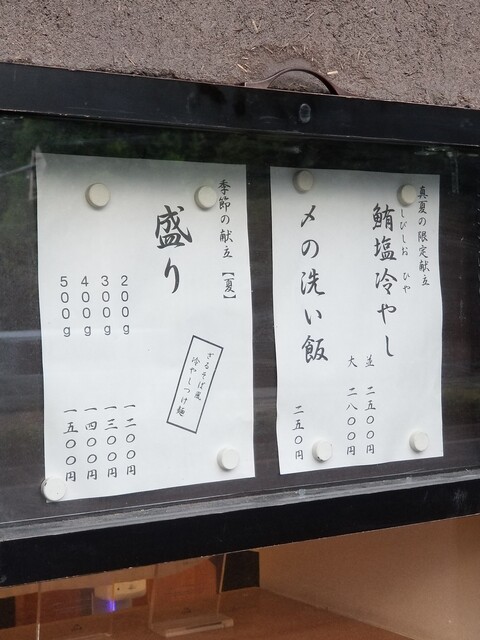 真夏の限定献立
しびしお ひや
鮪塩冷やし
並 二五〇〇円
大 二八〇〇円
〆の洗い飯
二五〇円
季節の献立【夏】
盛り
ざるそば風
冷やしつけ麺
200g 一二〇〇円
300g 一三〇〇円
400g 一四〇〇円
500g 一五〇〇円